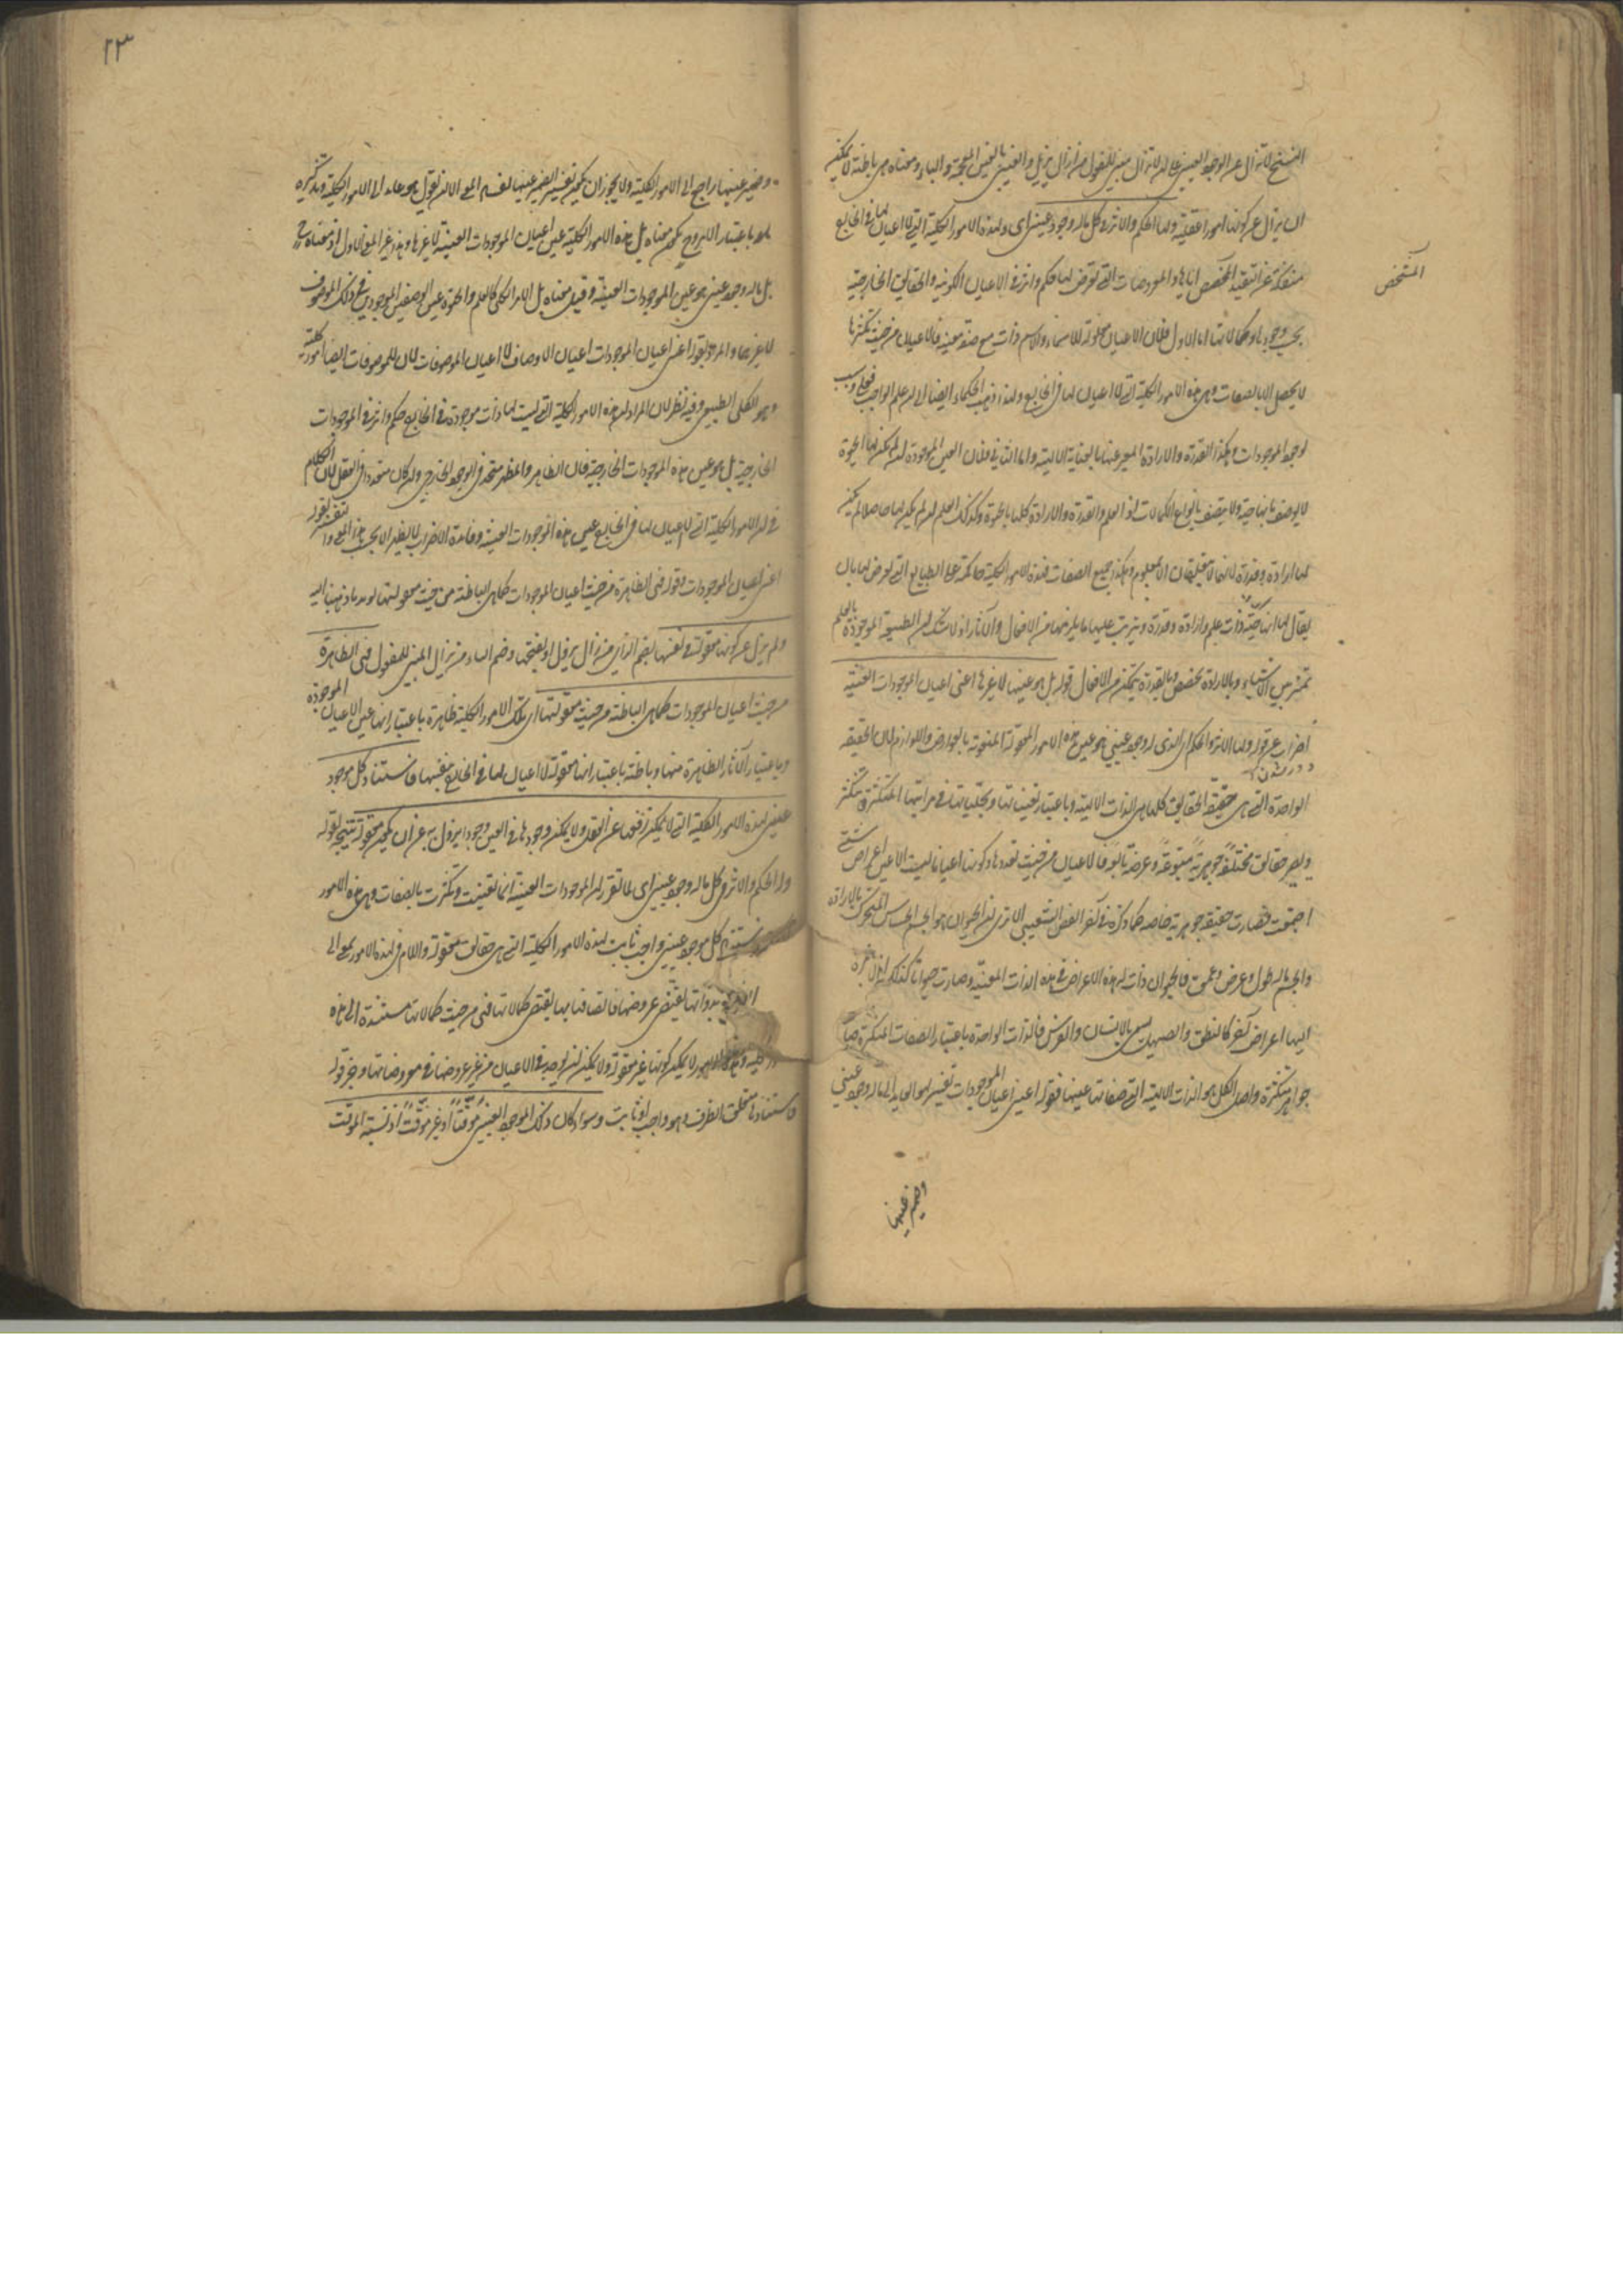 النسخ لا تزال عن الوجود العيني على ان لا تزال مبني للمفعول من ازال يزيل والغيبي بالغين المعجمة والباء ومعناه هي باطنة لا يمكن
ان يزال عن كونها امورا عقلية ولها الحكم والاثر في كل ماله وجود عيني اى ولهذه الامور الكلية التي لا اعيان لها في الخارج
منفكة عن التقيد المخصص اياها والمعروضات التي تعرض لها حكم واثر في الاعيان الكونية والحقايق الخارجية
المشخص
بحسب وجودها وكمالاتها اما الاول فلان الاعيان معلولة للاسماء والاسم ذات مع صفة معينة فالاعيان من حيث تكثرها
لا يحصل الا بالصفات وهي هذه الامور الكلية التي لا اعيان لها في الخارج ولهذا ذهب الحكماء ايضا الى ان علم الواجب فعلي وسبب
لوجود الموجودات وهكذا القدرة والارادة المعبر عنها بالعناية الالهية واما الثاني فلان العين الموجودة لو لم يكن لها الحيوة
لا يوصف بانها حية ولا يتصف بانواع الكمالات اذ العلم والقدرة والارادة كلها بالحيوة وكذلك العلم لو لم يكن لها حاصلا لم يكن
لها ارادة وقدرة لانهما لا يتعلقان الا بمعلوم وهكذا جميع الصفات فهذه الامور الكلية حاكمة على الطبايع التي تعرض لها بان
يقال لها انها حية ذات علم وارادة وقدرة ويترتب عليها ما يلزمها من الافعال والآثار اذ لا شك ان الطبيعة الموجودة بالعلم
تميز بين الاشياء وبالارادة تخصص وبالقدرة يتمكن من الافعال قوله بل هو عينها لا غيرها اعنى اعيان الموجودات العينية
اضراب عن قوله ولها الاثر والحكم اى الذى له وجود عيني هو عين هذه الامور المعقولة المنعوتة بالعوارض واللوازم لان الحقيقة
الواحدة التي هي حقيقة الحقايق كلها هي الذات الالهية وباعتبار تعيناتها وتجلياتها في مراتبها المتكثرة يتكثر
ويصير حقايق مختلفة جوهرية متبوعة وعرضية تابعة فالاعيان من حيث تعددها وكونها اعيانا ليست الا عين اعراض شتى
اجتمعت فصارت حقيقة جوهرية خاصة كما ذكره في آخر الفص الشعيبي الا ترى ان الحيوان هو الجسم الحساس المتحرك بالارادة
والجسم ماله طول وعرض وعمق فالحيوان ذات لهذه الاعراض في هذه الذات المعينة وصارت حيوانا كذلك اذا انضم
اليها اعراض آخر كالنطق والصهيل يسمى بالانسان والفرس فالذات الواحدة باعتبار الصفات المتكثرة صارت
جواهر متكثرة واصل الكل هو الذات الالهية التي صفاتها عينها فقوله اعنى اعيان الموجودات تفسير لهو العايد الى ماله وجود عيني
وضمير عينها
٢٣
وضمير عينها راجع الى الامور الكلية ولا يجوز ان يكون تفسير الضمير عينها لفساد المعنى الا ان نقول هو عايد الى الامور الكلية وتذكيره
بل ماله وجود عيني هو عين الموجودات العينية وقيل معناه بل الامر الكلي كالعلم والحيوة عين الوصفين الموجودين في ذلك الموصوف
لا غيرهما والمراد بقوله اعنى اعيان الموجودات اعيان الاوصاف لا اعيان الموصوفات لان للموصوفات ايضا امور كلية
وهو الكلي الطبيعي وفيه نظر لان المراد ان هذه الامور الكلية التي ليست لها ذات موجودة في الخارج حكم واثر في الموجودات
الخارجية بل هو عين هذه الموجودات الخارجية فان الظاهر والمظهر متحد في الوجود الخارجي وان كان متعددا في العقل لان الكلام
في ان الامور الكلية التي لا اعيان لها في الخارج عين هذه الموجودات العينية
اعنى اعيان الموجودات قوله فهي الظاهرة من حيث اعيان الموجودات كما هي الباطنة من حيث معقوليتها
ولم يزل عن كونها معقولة في نفسها بضم الزاى من زال يزول او بفتحها وضم الياء من يزال المبني للمفعول فهي الظاهرة
من حيث اعيان الموجودات كما هي الباطنة من حيث معقوليتها اى تلك الامور الكلية ظاهرة باعتبار انها عين الاعيان الموجودة
وباعتبار الآثار الظاهرة منها وباطنة باعتبار انها معقولة لا اعيان لها في الخارج بنفسها فاستناد كل موجود
عيني لهذه الامور الكلية التي لا يمكن رفعها عن العقل ولا يمكن وجودها في العين وجودا يزول به عن ان يكون معقولة نتيجة لقوله
ولها الحكم والاثر في كل ماله وجود عيني اى لما تقرر ان الموجودات العينية انما تعينت وتكثرت بالصفات وهي هذه الامور
كل موجود عيني واجب ثابت لهذه الامور الكلية التي هي حقايق معقولة واللام في لهذه الامور بمعنى الى
بذواتها يقتضى عروضها فاتصافها بها يقتضى كمالاتها فهي من حيث كمالاتها مستندة الى هذه
الامور لا يمكن كونها غير معقولة ولا يمكن ان يوجد في الاعيان من غير عروضها في معروضاتها وخبر قوله
فاستناد متعلق الظرف وهو واجب او ثابت وسواء كان ذلك الموجود العيني موقتا او غير موقت اذ نسبة الموقت